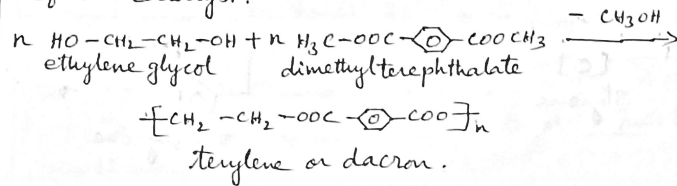 - CH3OH
n HO-CH2-CH2-OH + n H3C-OOC-⌬-COOCH3 →
ethylene glycol dimethylterephthalate
[CH2-CH2-OOC-⌬-COO]n
terylene or dacron.